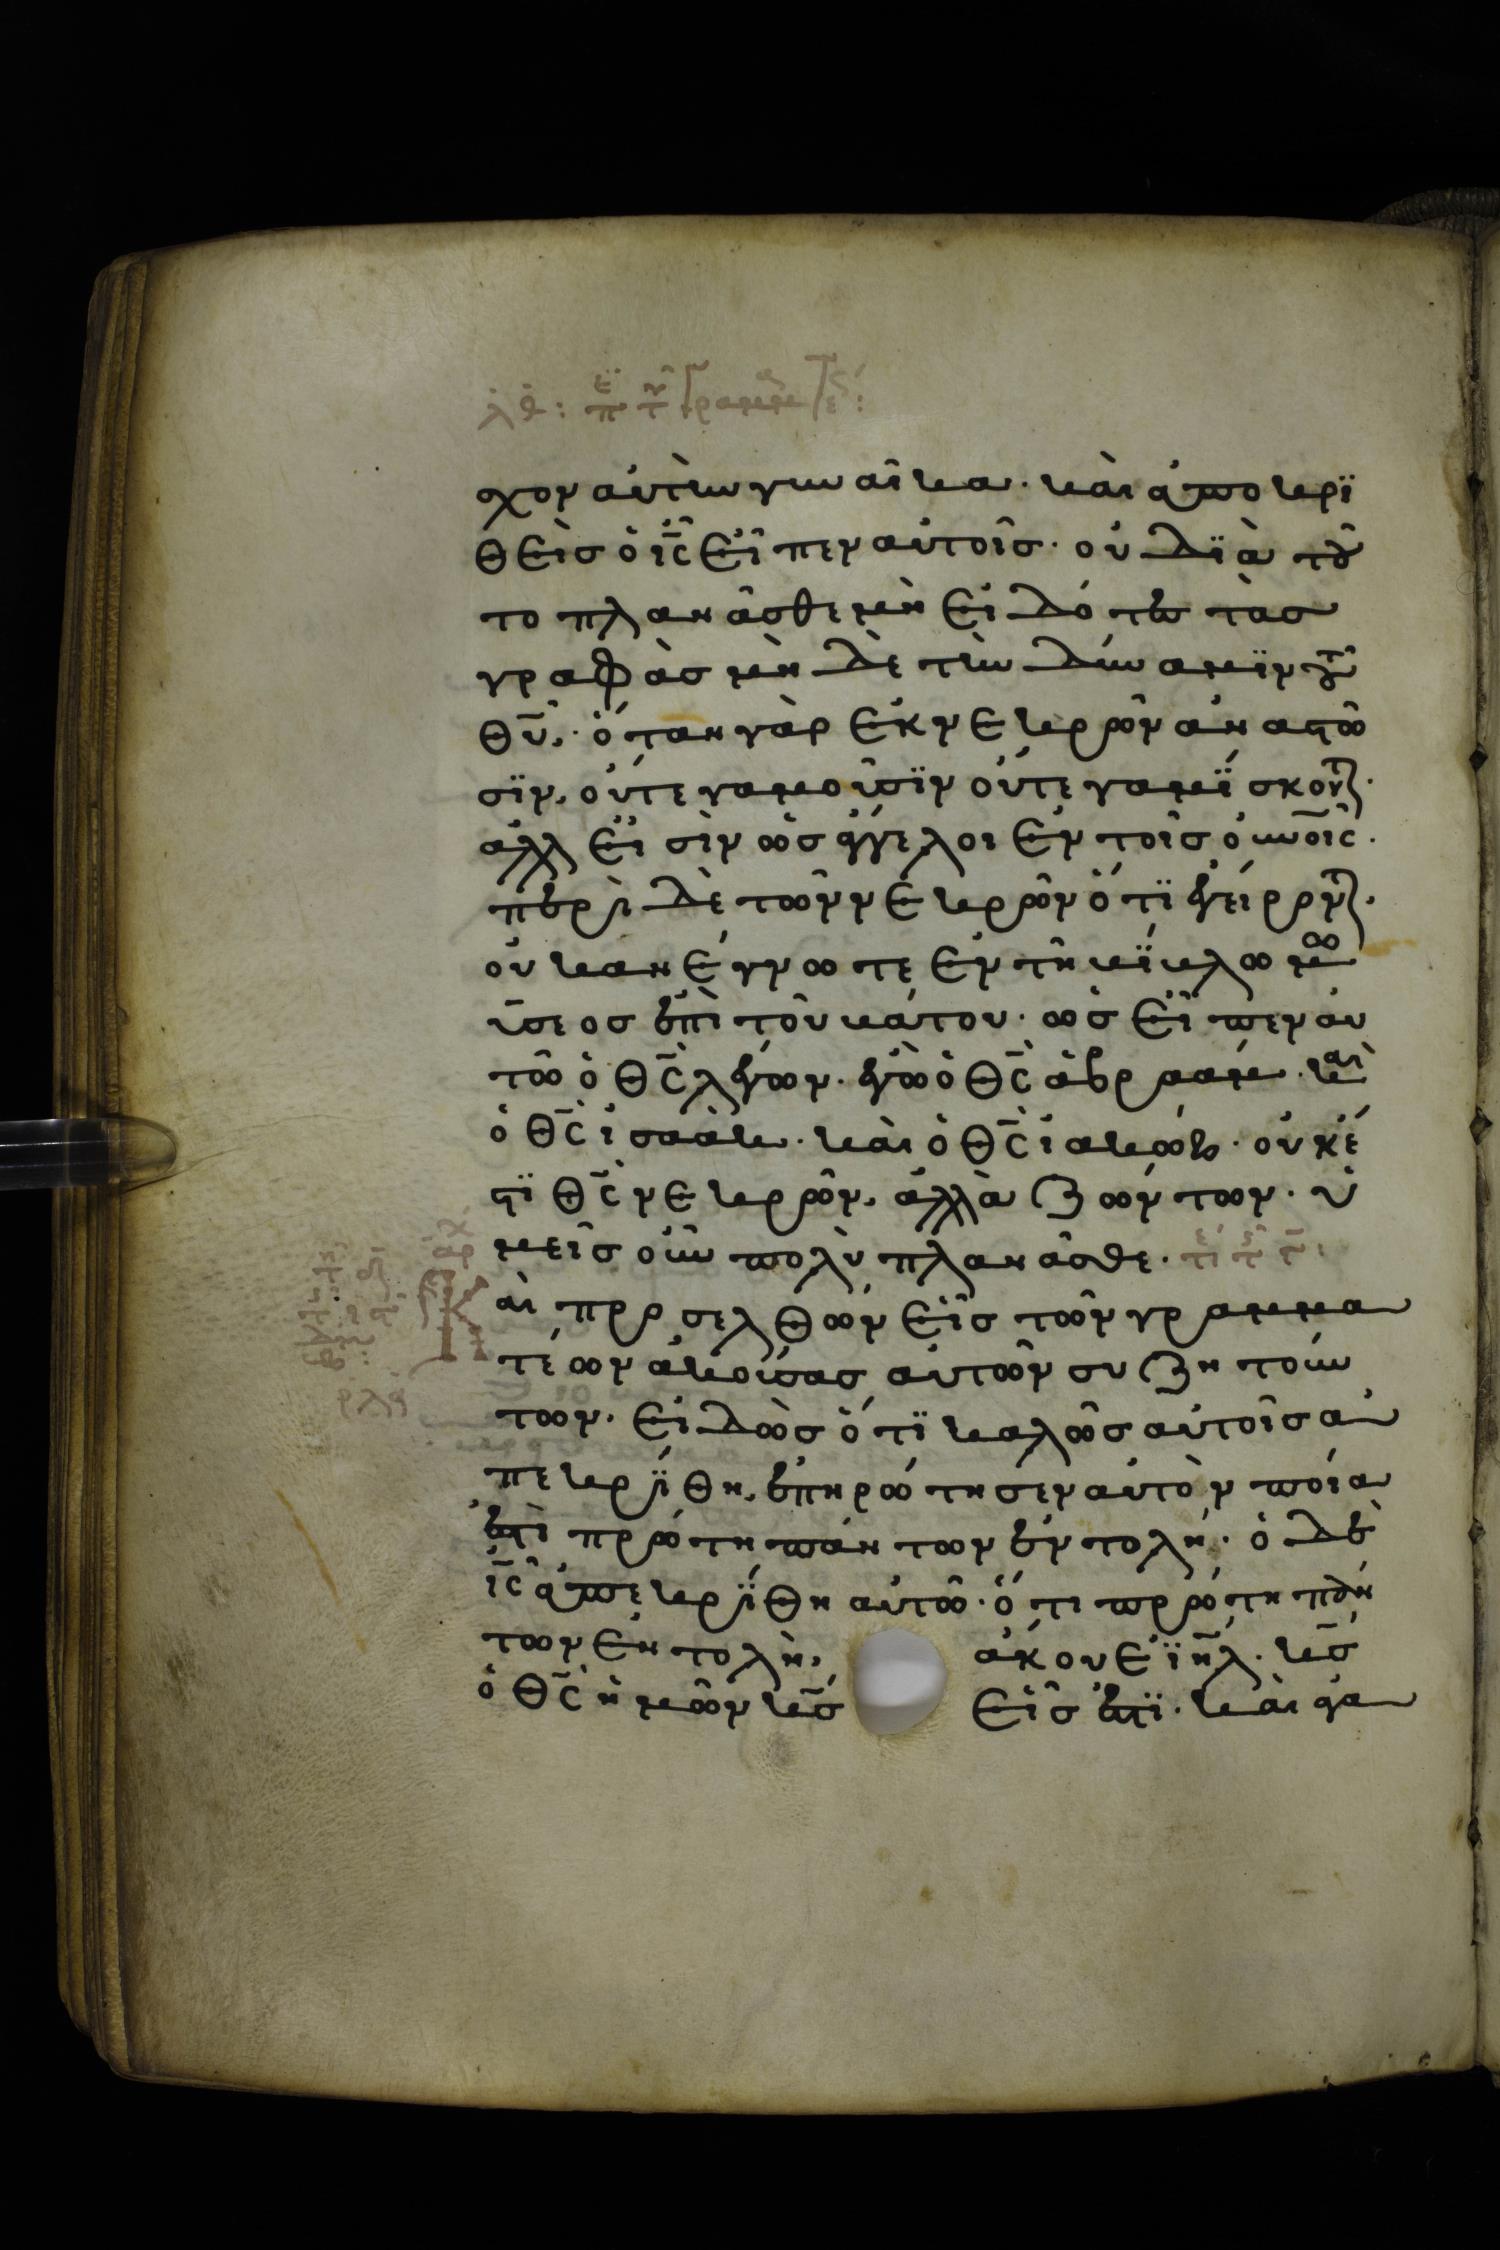 λθ: περὶ τοῦ γραμματέως:
σχον αὐτὴν γυναῖκα. καὶ ἀποκρϊ
θεὶς ὁ ις εἶπεν αὐτοῖς. οὐ δϊὰ τοῦ
το πλανᾶσθε μὴ εἰδότες τὰς
γραφὰς μὴ δὲ τὴν δύναμϊν τοῦ
θυ, ὅταν γὰρ ἐκ νεκρῶν ἀναστῶ
σϊν, οὔτε γαμοῦσϊν οὔτε γαμΐσκονται.
ἀλλ εἰσὶν ὡς ἄγγελοι ἐν τοῖς οὐνοῖς.
περὶ δὲ τῶν νεκρῶν ὅτϊ ἐγείρονται.
οὐκ ἀνέγνωτε ἐν τῇ βΐβλω μω
ϋσεος ἐπὶ τοῦ βάτου. ὡς εἶπεν αὐ
τῶ ὁ θς λέγων. ἐγὼ ὁ θς ἀβρααμ. καὶ
ὁ θς ἰσαὰκ. καὶ ὁ θς ἰακώβ. οὐκ ἔ
στϊ θς νεκρῶν, ἀλλὰ ζώντων. ὑ
μεῖς οὖν πολὺ πλανᾶσθε.
αὶ προσελθὼν εἷς τῶν γραμμα
τέων ἀκούσας αὐτῶν συζητούν
των. εἰδὼς ὅτϊ καλῶς αὐτοῖς ἀ
πεκρΐθη, ἐπηρώτησεν αὐτὸν ποία
ἐστὶ πρώτη πάντων ἐντολή. ὁ δὲ
ις ἀπεκρΐθη αὐτῶ. ὅτι πρώτη πάν
των ἐντολὴ, ἄκουε ϊηλ. κς
ὁ θς ἡμῶν κς εἷς ἐστϊ. καὶ ἀγα
ρλα